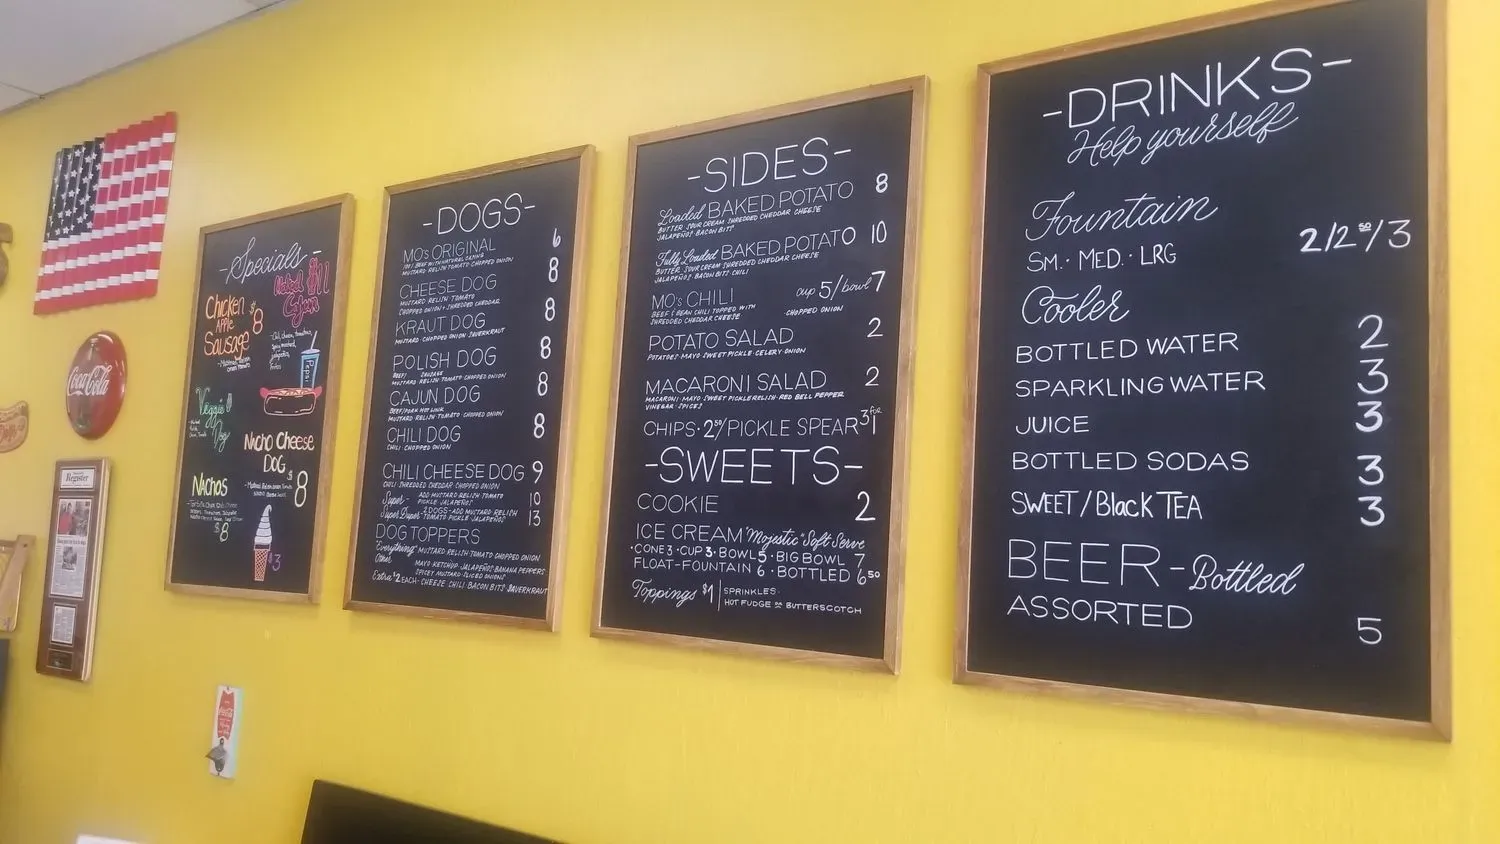 -Specials-
Chicken
Apple
Sausage
$8
$11
Cajun
Pepsi
Veggie
Dog
Nacho Cheese
Dog
$8
Nachos
$8
$3
-DOGS-
MO's ORIGINAL 6
100% BEEF WITH NATURAL CASING
MUSTARD·RELISH·TOMATO·CHOPPED ONION
CHEESE DOG 8
MUSTARD·RELISH·TOMATO
CHOPPED ONION·SHREDDED CHEDDAR
KRAUT DOG 8
MUSTARD·CHOPPED ONION·SAUERKRAUT
POLISH DOG 8
BEEF SAUSAGE
MUSTARD·RELISH·TOMATO·CHOPPED ONION
CAJUN DOG 8
BEEF/PORK HOT LINK
MUSTARD·RELISH·TOMATO·CHOPPED ONION
CHILI DOG 8
CHILI·CHOPPED ONION
CHILI CHEESE DOG 9
CHILI·SHREDDED CHEDDAR·CHOPPED ONION
Super- ADD MUSTARD·RELISH·TOMATO 10
PICKLE·JALAPEÑOS
Super Duper- 2 DOGS-ADD MUSTARD·RELISH 13
TOMATO·PICKLE·JALAPEÑOS
DOG TOPPERS
"Everything" MUSTARD·RELISH·TOMATO·CHOPPED ONION
Other MAYO·KETCHUP·JALAPEÑOS·BANANA PEPPERS
SPICY MUSTARD·SLICED ONIONS
Extra $2 EACH-CHEESE·CHILI·BACON BITS·SAUERKRAUT
-SIDES-
Loaded BAKED POTATO 8
BUTTER·SOUR CREAM·SHREDDED CHEDDAR CHEESE
JALAPEÑOS·BACON BITS
Fully Loaded BAKED POTATO 10
BUTTER·SOUR CREAM·SHREDDED CHEDDAR CHEESE
JALAPEÑOS·BACON BITS·CHILI
MO's CHILI cup 5/bowl 7
BEEF & BEAN CHILI TOPPED WITH ·CHOPPED ONION
SHREDDED CHEDDAR CHEESE
POTATO SALAD 2
POTATOES·MAYO·SWEET PICKLE·CELERY·ONION
MACARONI SALAD 2
MACARONI·MAYO·SWEET PICKLE RELISH·RED BELL PEPPER
VINEGAR·SPICES
CHIPS·2⁵⁰/PICKLE SPEAR 3 FOR 1
-SWEETS-
COOKIE 2
ICE CREAM "Majestic" Soft Serve
·CONE 3·CUP 3·BOWL 5·BIG BOWL 7
FLOAT-FOUNTAIN 6·BOTTLED 6⁵⁰
Toppings $1 SPRINKLES·
HOT FUDGE OR BUTTERSCOTCH
-DRINKS-
Help yourself
Fountain
SM.·MED.·LRG 2/2⁵⁰/3
Cooler
BOTTLED WATER 2
SPARKLING WATER 3
JUICE 3
BOTTLED SODAS 3
SWEET/Black TEA 3
BEER-Bottled
ASSORTED 5
Coca-Cola
Register